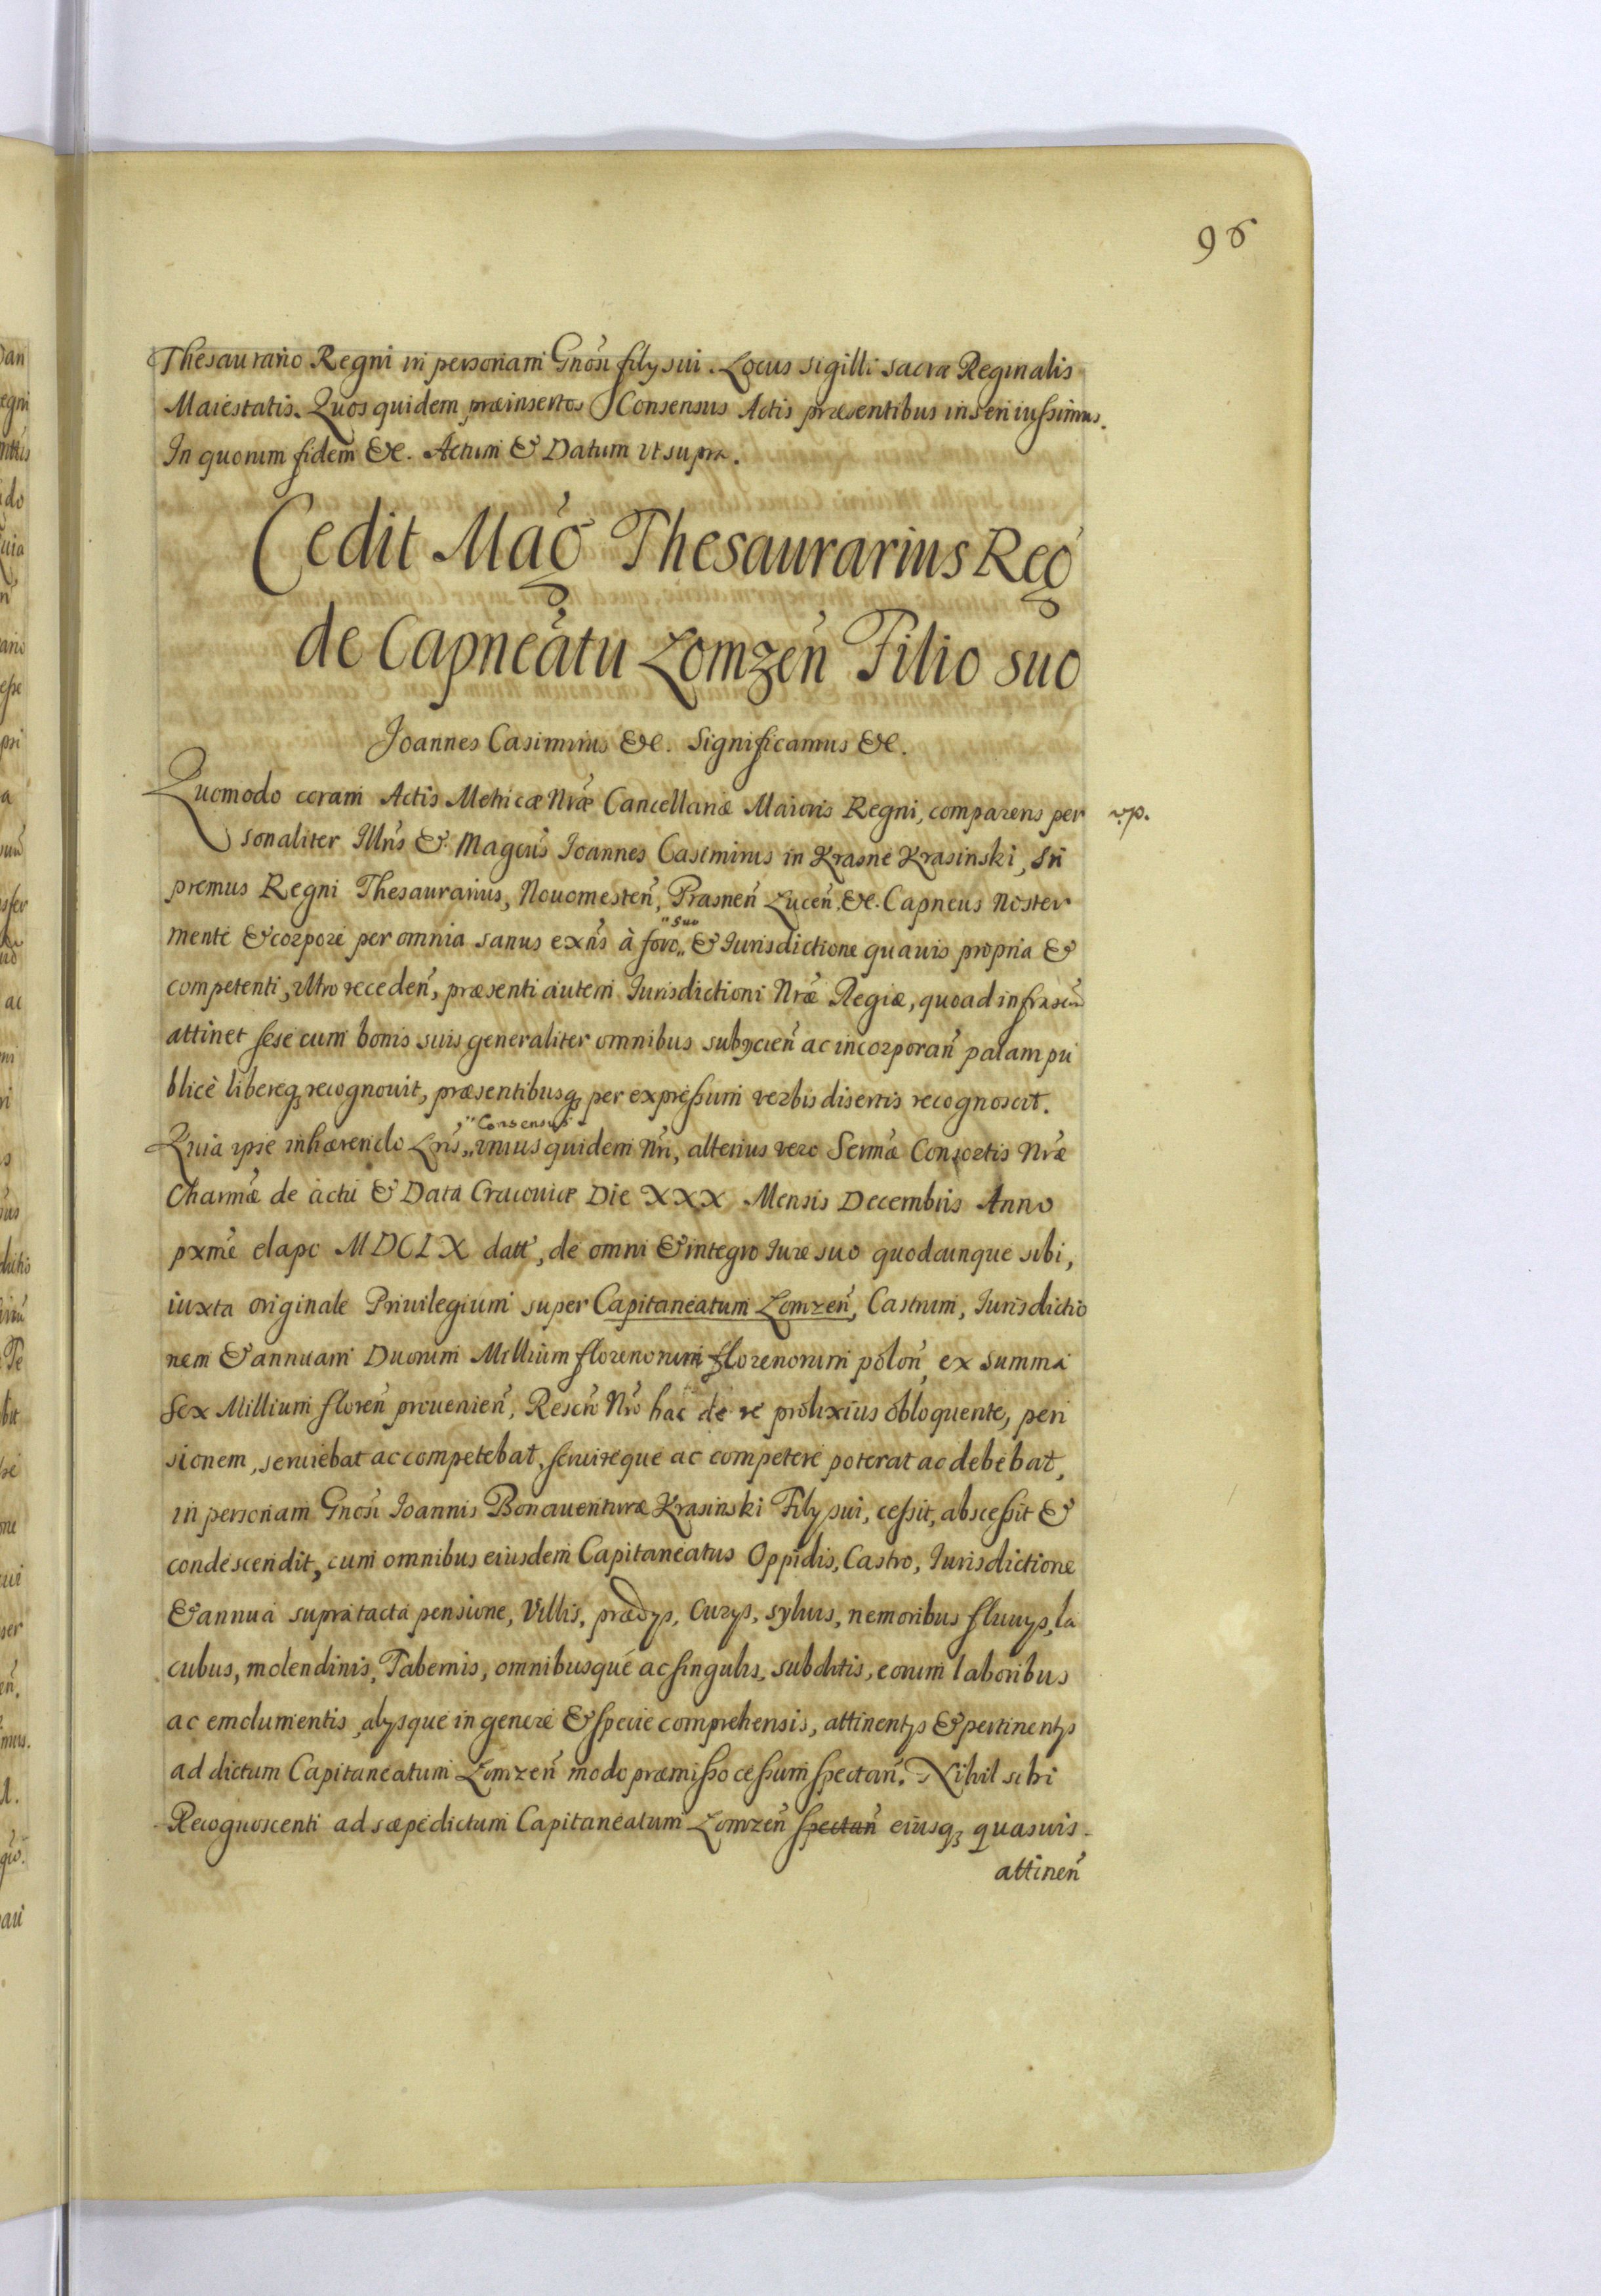 96
Thesaurario Regni in personam Gnosi filij sui. Locus sigilli sacræ Reginalis
Maiestatis. Quos quidem præinsertos Consensus Actis præsentibus inseri iussimus.
In quorum fidem &c. Actum & Datum ut supra.
Cedit Mag Thesaurarius Reg
de Capneatu Lomzeń Filio suo
Joannes Casimirus &c. Significamus &c.
Quomodo coram Actis Metricæ Nræ Cancellariæ Maioris Regni, comparens per
sonaliter Illris & Magcus Joannes Casimirus in Krasne Krasinski, Su
premus Regni Thesaurarius, Nouomesteń, Prasneń Luceń &c. Capneus Noster
mente & corpore per omnia sanus exns à foro „ suo & Iurisdictione quauis propria &
competenti, ultro recedeń, præsenti autem Iurisdictioni Nræ Regiæ, quoad infrascru
attinet sese cum bonis suis generaliter omnibus subijcień ac incorporań palam pu
blicè libereq3 recognouit, præsentibusq3 per expressum verbis disertis recognoscit.
Quia ipse inhærendo Lris „ Consensus unius quidem Nri, alterius vero Sermæ Consortis Nræ
Charmæ de actu & Data Cracouiæ Die XXX Mensis Decembris Anno
pxmè elapo MDCLX datt, de omni & integro Iure suo quodcunque sibi,
iuxta originale Priuilegium super Capitaneatum Lomzeń, Castrum, Iurisdictio
nem & annuam Duorum Millium florenorum florenorum poloń, ex summa
Sex Millium floreń prouenień, Rescro Nro hac de re prolixius obloquente, pen
sionem, seruiebat ac competebat, seruireque ac competere poterat ac debebat,
in personam Gnosi Ioannis Bonauenturæ Krasinski Filij sui, cessit, abscessit &
condescendit, cum omnibus eiusdem Capitaneatus Oppidis, Castro, Iurisdictione
& annua supratacta pensione, Villis, prædijs, Curijs, syluis, nemoribus fluuijs, la
cubus, molendinis, Tabernis, omnibusque ac singulis, subditis, eorum laboribus
ac emolumentis, alijsque in genere & specie comprehensis, attinentijs & pertinentijs
ad dictum Capitaneatum Lomzeń modo præmisso cessum spectań. Nihil sibi
Recognoscenti ad sæpedictum Capitaneatum Lomzeń spectań eiusq3 quasuis
attineń